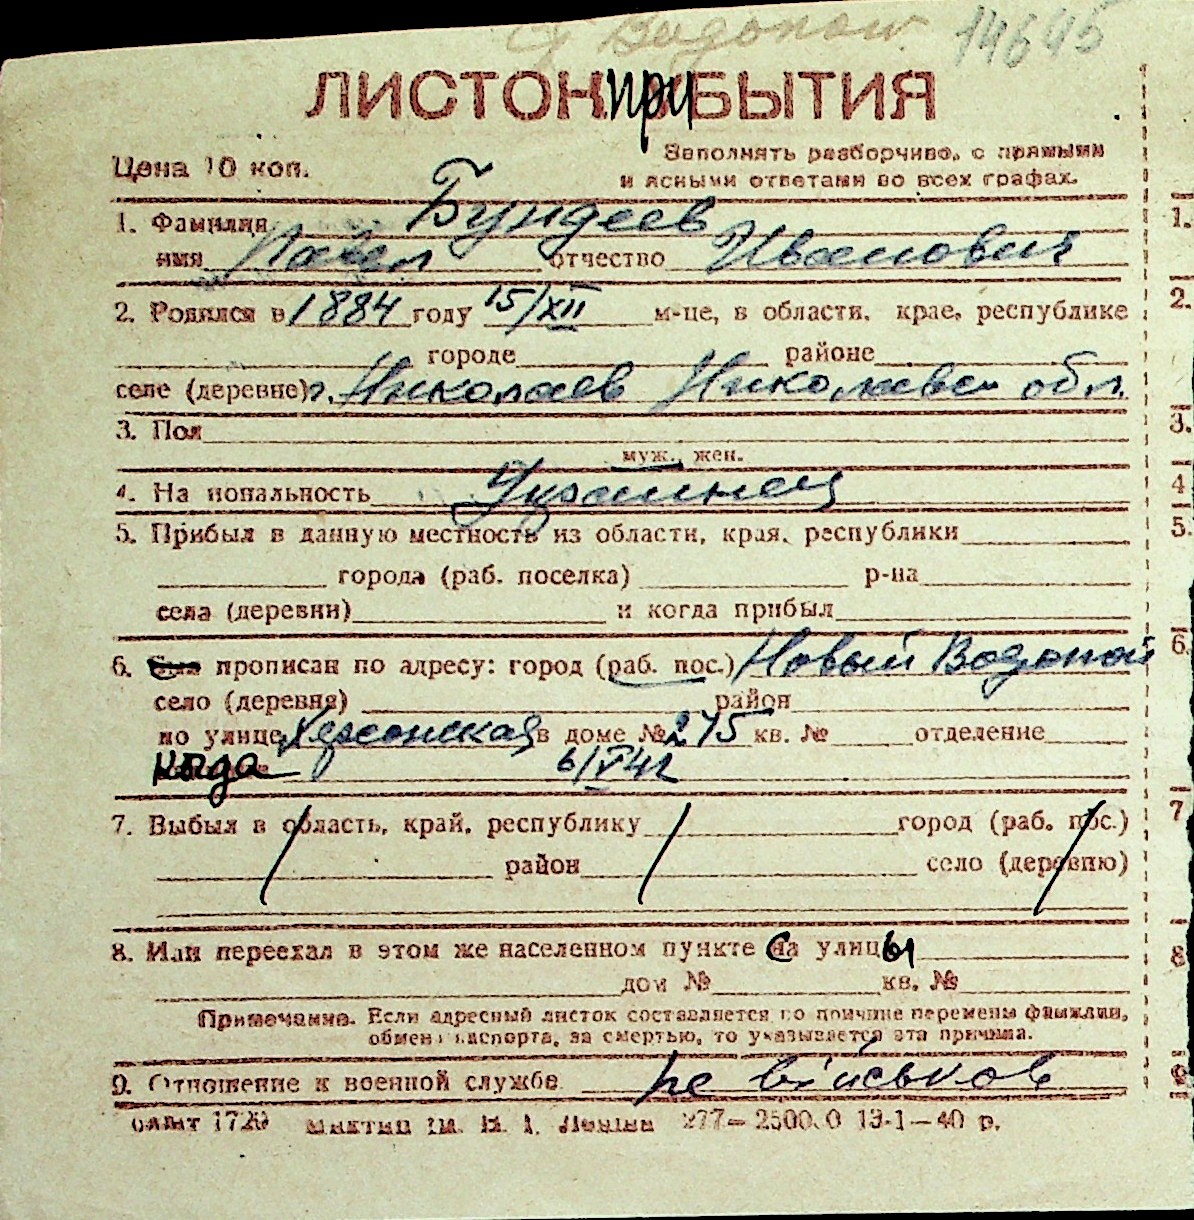 Водопой 14645
ЛИСТОК приБЫТИЯ
Цена 10 коп.
Заполнять разборчиво, с прямыми
и ясными ответами во всех графах.
1. Фамилия Бундеев
имя Павел отчество Иванович
2. Родился в 1884 году 15/XII м-це, в области, крае, республике
городе районе
селе (деревне) г. Николаев Николаевск обл.
3. Пол
муж., жен.
4. На иональность Украинец
5. Прибыл в данную местность из области, края, республики
города (раб. поселка) р-на
села (деревни) и когда прибыл
6. Был прописан по адресу: город (раб. пос.) Новый Водопой
село (деревня) район
по улице Херсонская в доме № 275 кв. № отделение
куда 6/V 42
7. Выбыл в область, край, республику город (раб. пос.)
район село (деревню)
8. Или переехал в этом же населенном пункте са улицы
дом № кв. №
Примечание. Если адресный листок составляется по причине перемены фамилии,
обмена паспорта, за смертью, то указывается эта причина.
9. Отношение к военной службе не військов
1720 277—2500.0 13-1—40 р.
1.
2.
3.
4
5.
6.
7
8
9